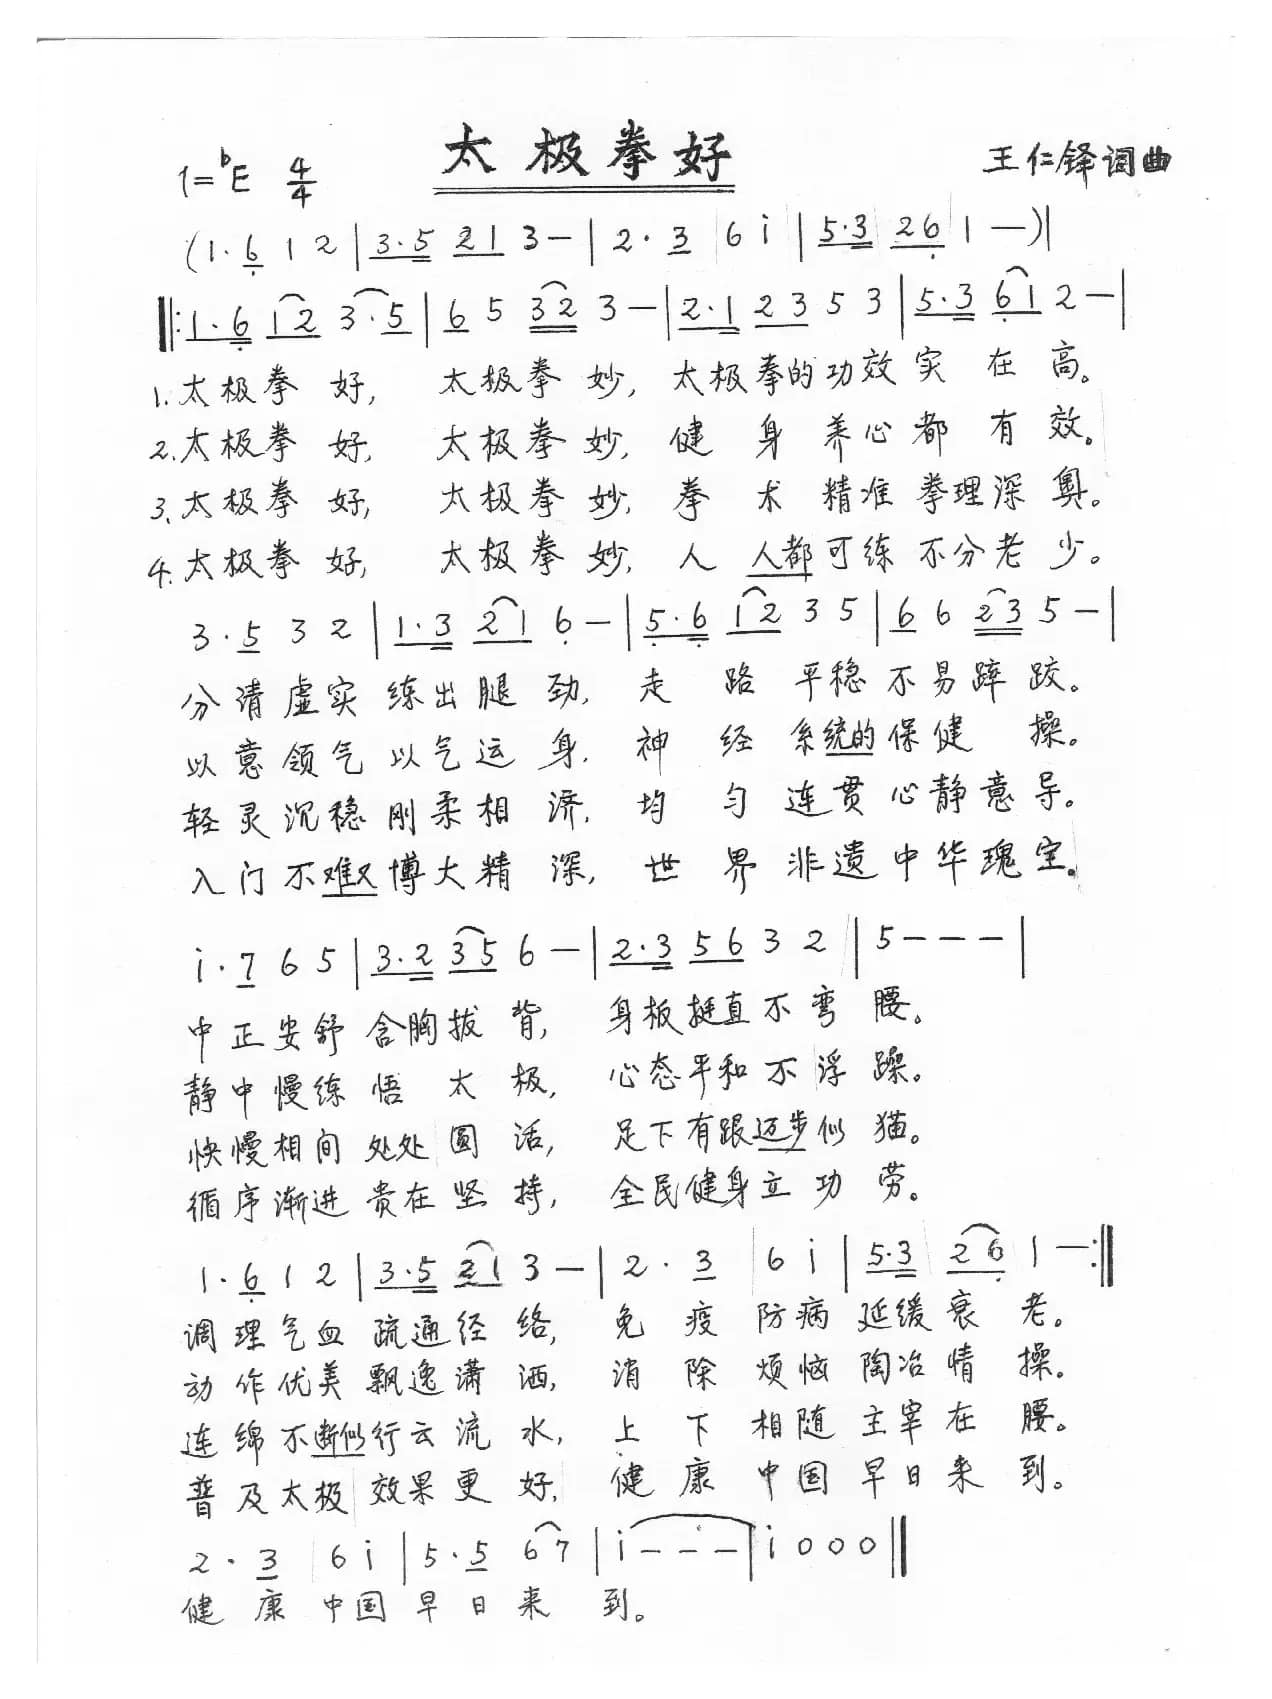 太极拳好
1=♭E 4/4 王仁铎词曲
(1·6 1 2 | 3·5 21 3 — | 2·3 6 i | 5·3 26 1 —)|
‖:1·6 12 3·5 | 6 5 32 3 — | 2·1 23 5 3 | 5·3 61 2 — |
1.太极拳好,太极拳妙,太极拳的功效实在高。
2.太极拳好,太极拳妙,健身养心都有效。
3.太极拳好,太极拳妙,拳术精准拳理深奥。
4.太极拳好,太极拳妙,人人都可练不分老少。
3·5 3 2 | 1·3 21 6 — | 5·6 12 3 5 | 6 6 23 5 — |
分清虚实练出腿劲,走路平稳不易蹿跤。
以意领气以气运身,神经系统的保健操。
轻灵沉稳刚柔相济,均匀连贯心静意导。
入门不难又博大精深,世界非遗中华瑰宝。
i·7 6 5 | 3·2 35 6 — | 2·3 56 3 2 | 5 — — — |
中正安舒含胸拔背,身板挺直不弯腰。
静中慢练悟太极,心态平和不浮躁。
快慢相间处处圆活,足下有跟迈步似猫。
循序渐进贵在坚持,全民健身立功劳。
1·6 1 2 | 3·5 21 3 — | 2·3 6 i | 5·3 26 1 — :‖
调理气血疏通经络,免疫防病延缓衰老。
动作优美飘逸潇洒,消除烦恼陶冶情操。
连绵不断似行云流水,上下相随主宰在腰。
普及太极效果更好,健康中国早日来到。
2·3 6 i | 5·5 67 | i — — — | i 0 0 0 ‖
健康中国早日来到。